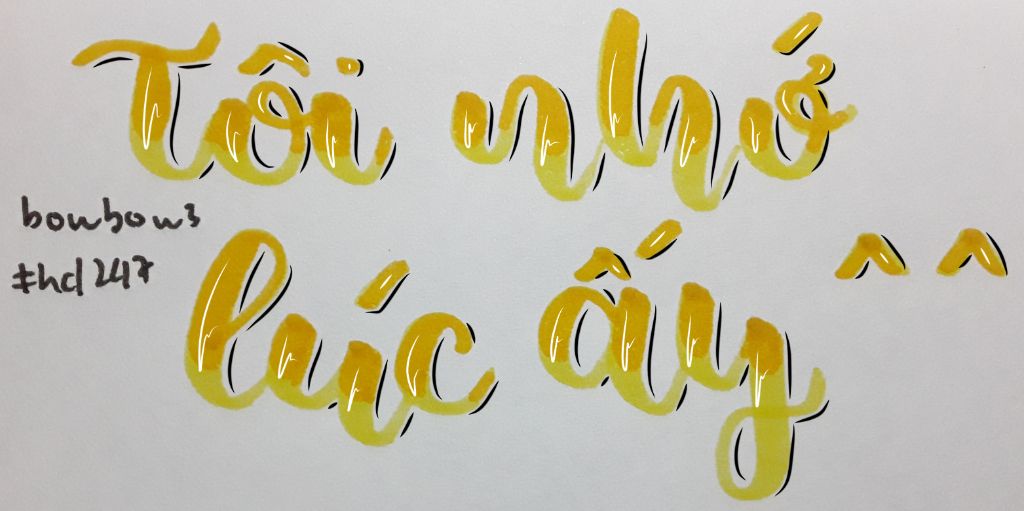 Tôi nhớ
bonbon3
#hd247
lúc ấy ^^